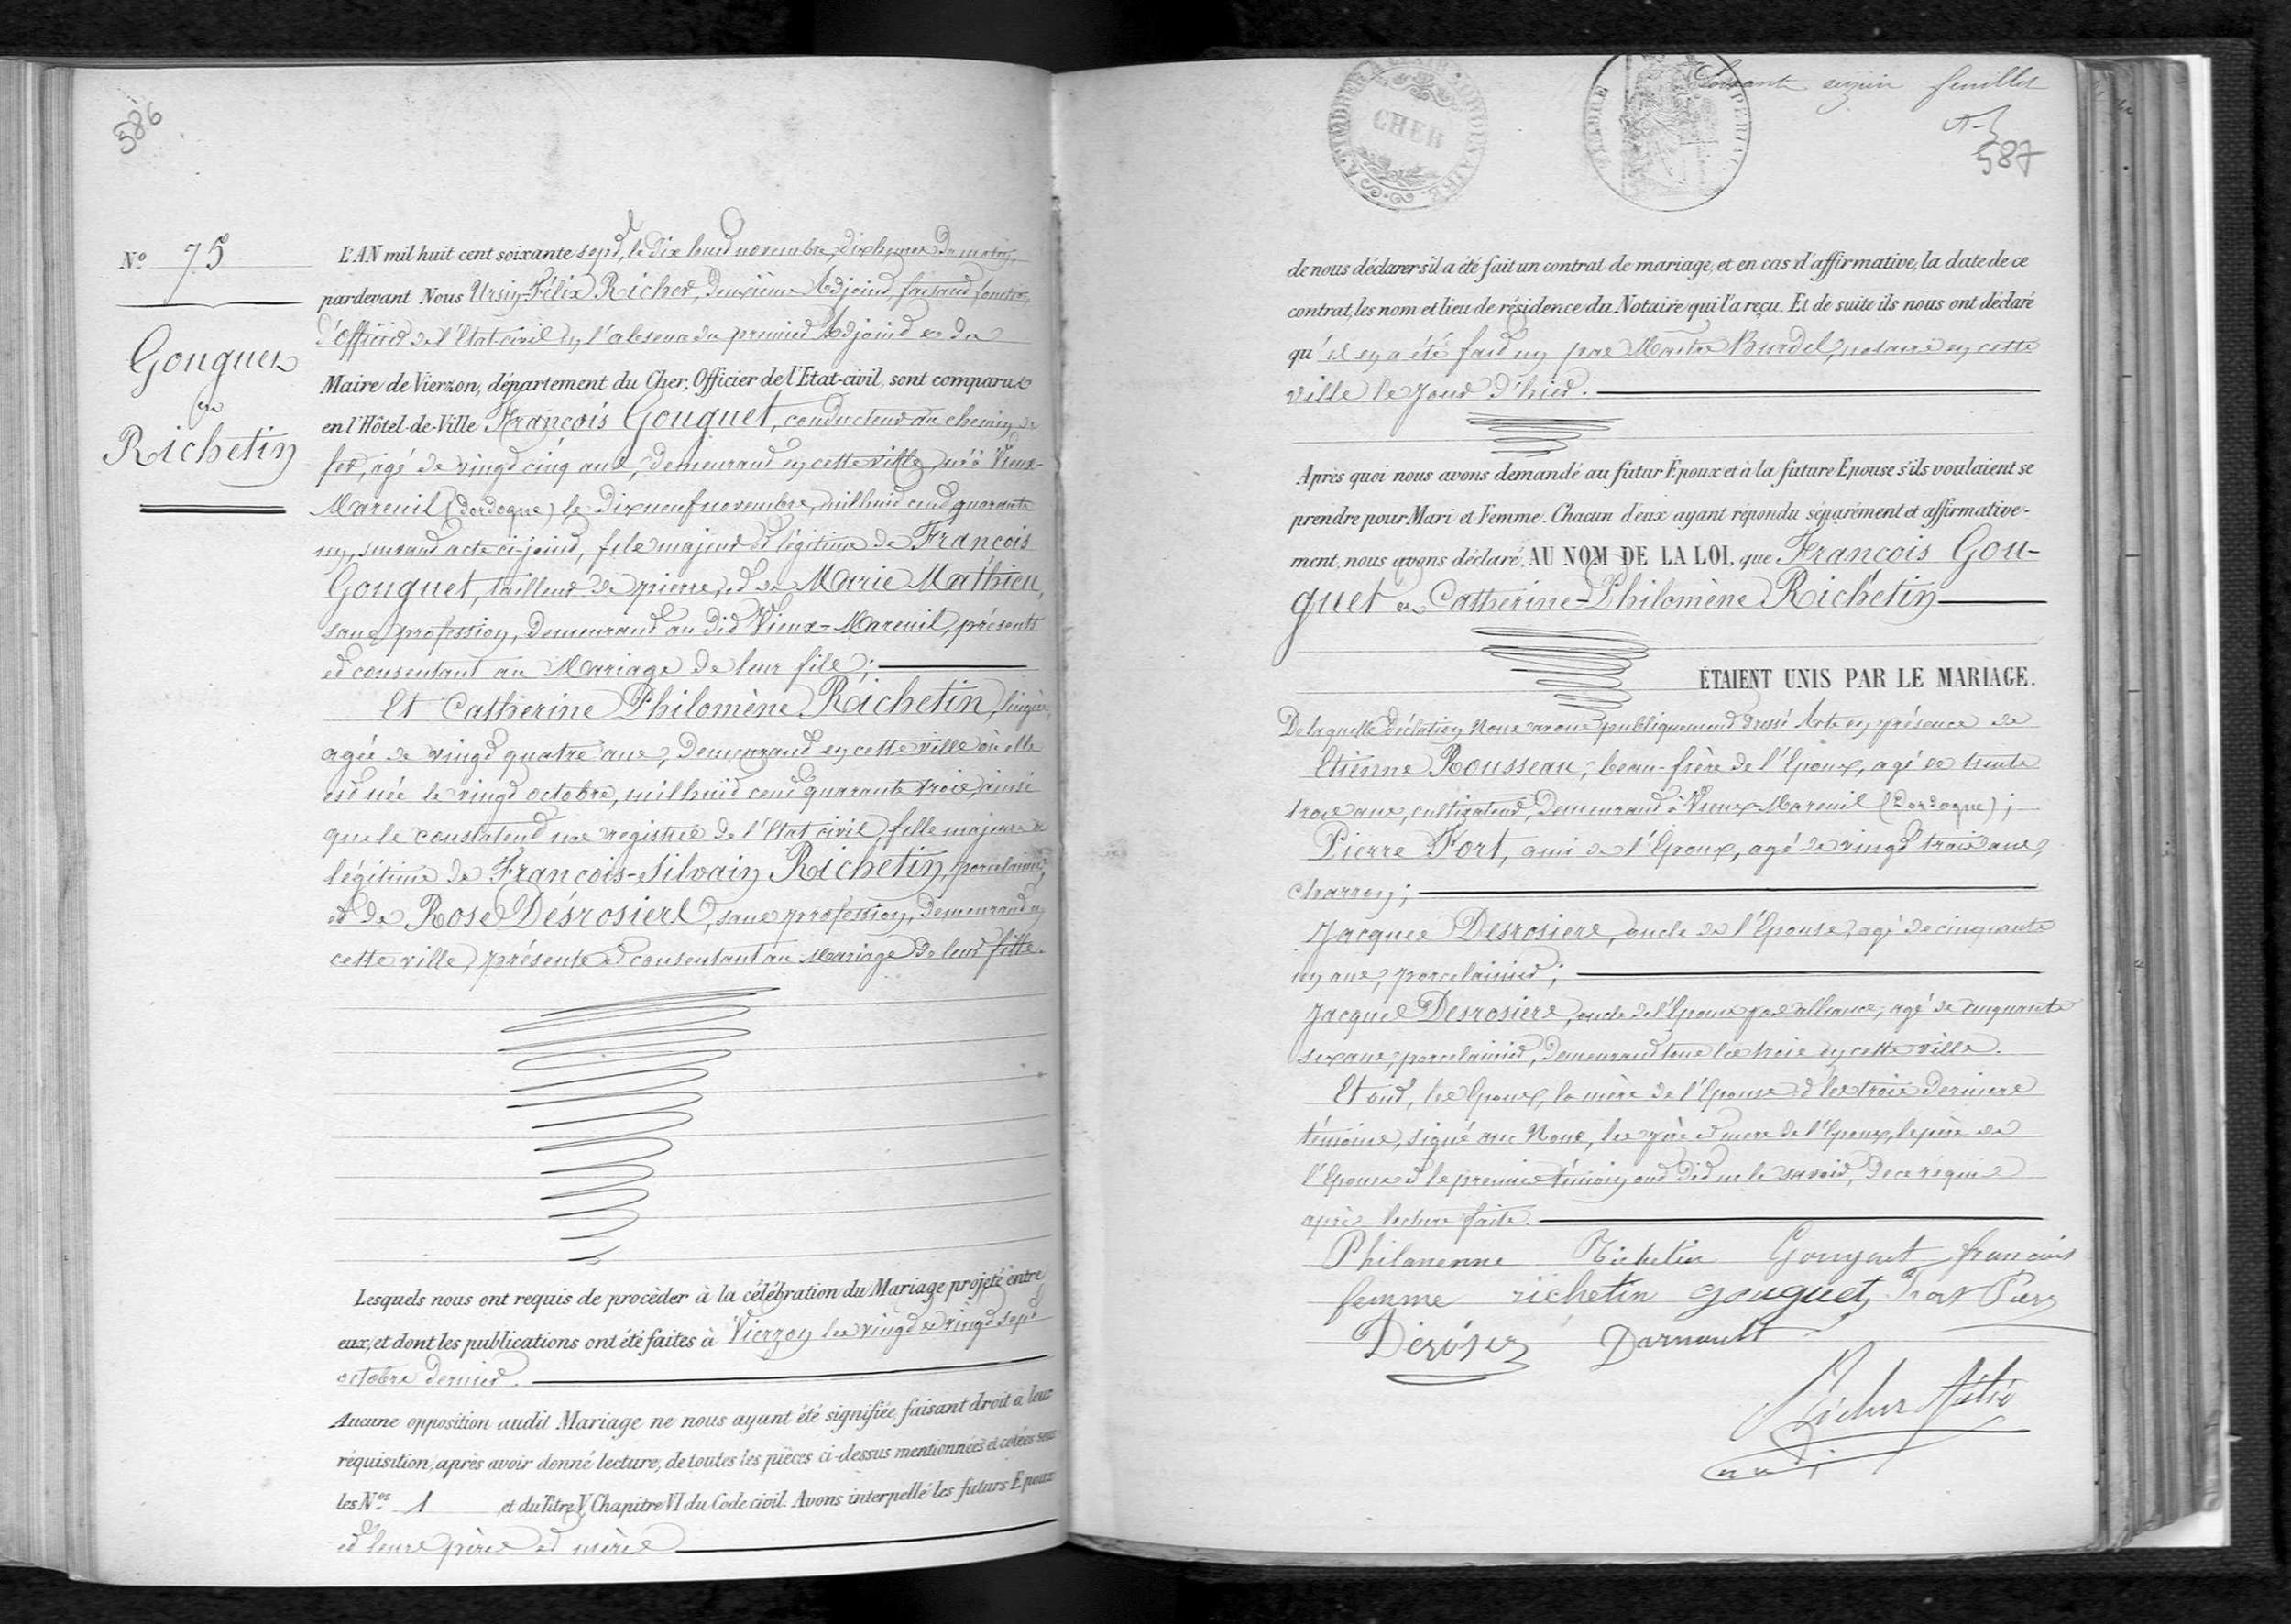 586
N.º 75
Gouguet
et
Richetin
L'AN mil huit cent soixante sept, le dix huit novembre, dix heures du matin,
pardevant Nous Ursin-Félix Richer, deuxième Adjoint, faisant fonctions
d'Officier de l'Etat-civil en l'absence du premier Adjoint et du
Maire de Vierzon, département du Cher, Officier de l'Etat-civil, sont comparus
en l'Hôtel-de-Ville François Gouguet, conducteur au chemin de
fer, agé de vingt cinq ans, demeurant en cette ville, né à Vieux-
Mareuil (Dordogne) le dix neuf novembre, mil huit cent quarante
un, suivant acte ci-joint, fils majeur et légitime de François
Gouguet, tailleur de pierre, et de Marie Mathieu,
sans profession, demeurant au dit Vieux-Mareuil, présents
et consentant au Mariage de leur fils;
Et Catherine Philomène Richetin, lingère,
agée de vingt quatre ans, demeurant en cette ville où elle
est née le vingt octobre, mil huit cent quarante trois, ainsi
que le constatent nos registres de l'Etat civil, fille majeure et
légitime de François-Silvain Richetin, porcelainier,
et de Rose Désrosiers, sans profession, demeurant en
cette ville, présents et consentant au Mariage de leur fille.
Lesquels nous ont requis de procèder à la célébration du Mariage projeté entre
eux, et dont les publications ont été faites à Vierzon les vingt et vingt sept
octobre dernier.
Aucune opposition audit Mariage ne nous ayant été signifiée, faisant droit a leur
réquisition, après avoir donné lecture, de toutes les pièces ci-dessus mentionnées et cotées sous
les N.os 1 , et du Titre V, Chapitre VI du Code civil. Avons interpellé les futurs Epoux
et leurs pères et mères
TIMBRE ORDINAIRE
CHER
TIMBRE IMPERIAL
Soixante feuillet
587
de nous déclarer s'il a été fait un contrat de mariage, et en cas d'affirmative, la date de ce
contrat, les nom et lieu de résidence du Notaire qui l'a reçu. Et de suite ils nous ont déclaré
qu'il en a été fait un par Maître Burdel, notaire en cette
ville le jour d'hier.
Après quoi nous avons demandé au futur Époux et à la future Épouse s'ils voulaient se
prendre pour Mari et Femme. Chacun d'eux ayant répondu séparément et affirmative-
ment, nous avons déclaré, AU NOM DE LA LOI, que François Gou-
guet et Catherine-Philomène Richetin
ÉTAIENT UNIS PAR LE MARIAGE.
De laquelle déclation Nous avons publiquement dressé Acte en présence de
Etienne Rousseau, beau-frère de l'Epoux, agé de trente
trois ans, cultivateur, demeurant à Vieux-Mareuil (Dordogne);
Pierre Fort, ami de l'Epoux, agé de vingt trois ans,
charron;
Jacques Desrosiers, oncle de l'Epouse, agé de cinquante
un ans, porcelainier;
Jacques Desrosiers, oncle de l'Epouse par alliance, agé de cinquante
six ans, porcelainier, demeurant tous les trois en cette ville.
Et ont, les Epoux, la mère de l'Epouse et les trois derniers
témoins, signé avec Nous, les père et mère de l'Epoux, le père de
l'Epouse et le premier témoin ont dit ne le savoir, de ce requis
après lecture faite.
Philomenne Richetin Gouguet francois
femme richetin gouguet, Fort Pierre
Dérosier Darnault
Richer Félix